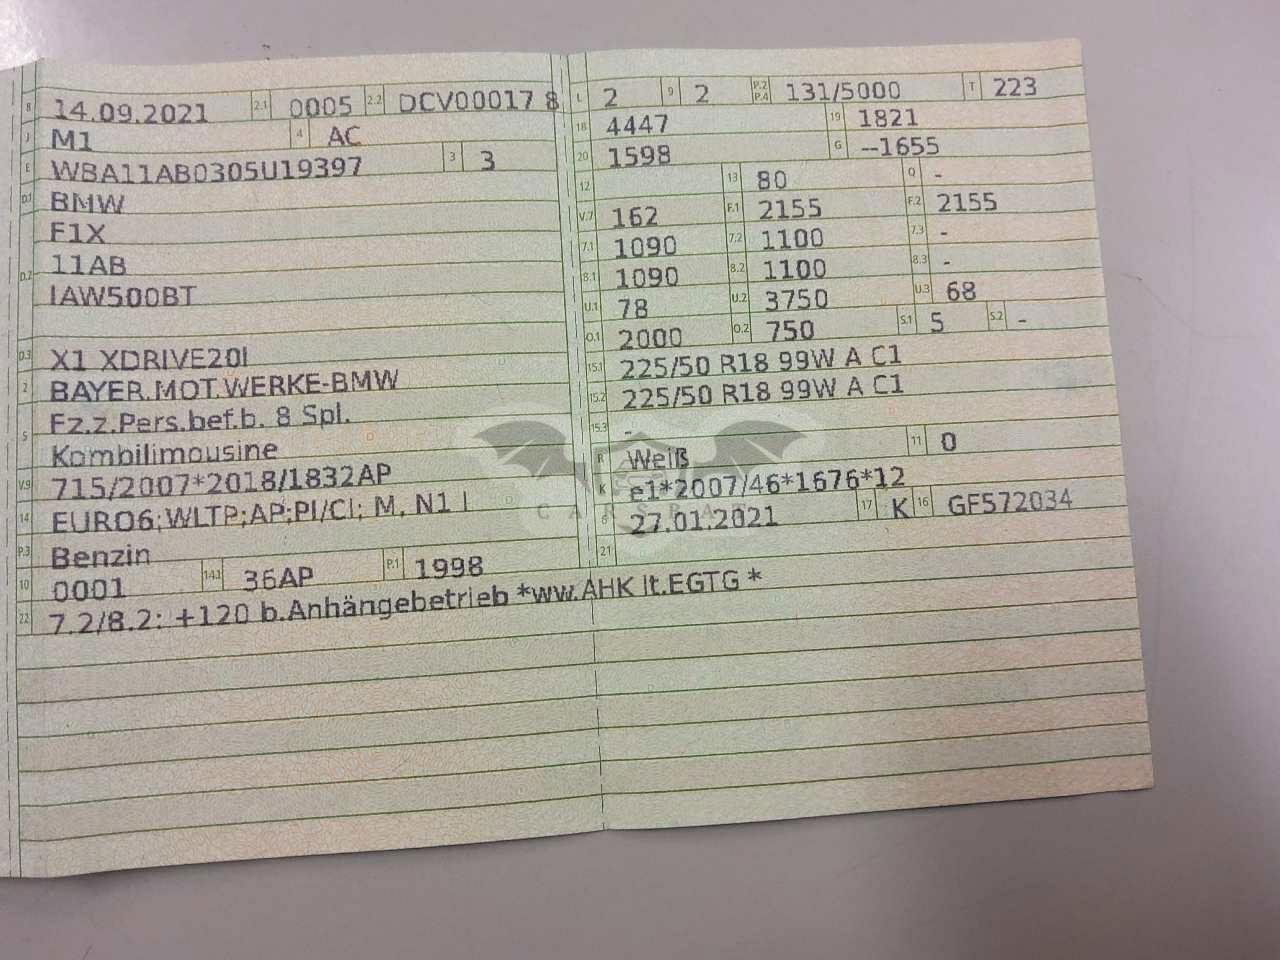 B 14.09.2021 2.1 0005 2.2 DCV00017 8
J M1 4 AC
E WBA11AB0305U19397 3 3
D.1 BMW
F1X
D.2 11AB
IAW500BT
D.3 X1 XDRIVE20I
2 BAYER.MOT.WERKE-BMW
5 Fz.z.Pers.bef.b. 8 Spl.
Kombilimousine
V.9 715/2007*2018/1832AP
14 EURO6;WLTP;AP;PI/CI; M, N1 I
P.3 Benzin
10 0001 14.1 36AP P.1 1998
22 7.2/8.2: +120 b.Anhängebetrieb *ww.AHK lt.EGTG *
L 2 9 2 P.2 P.4 131/5000 T 223
18 4447 19 1821
20 1598 G --1655
12 13 80 Q -
V.7 162 F.1 2155 F.2 2155
7.1 1090 7.2 1100 7.3 -
8.1 1090 8.2 1100 8.3 -
U.1 78 U.2 3750 U.3 68
O.1 2000 O.2 750 S.1 5 S.2 -
15.1 225/50 R18 99W A C1
15.2 225/50 R18 99W A C1
15.3 -
R Weiß 11 0
K e1*2007/46*1676*12
6 27.01.2021 17 K 16 GF572034
21